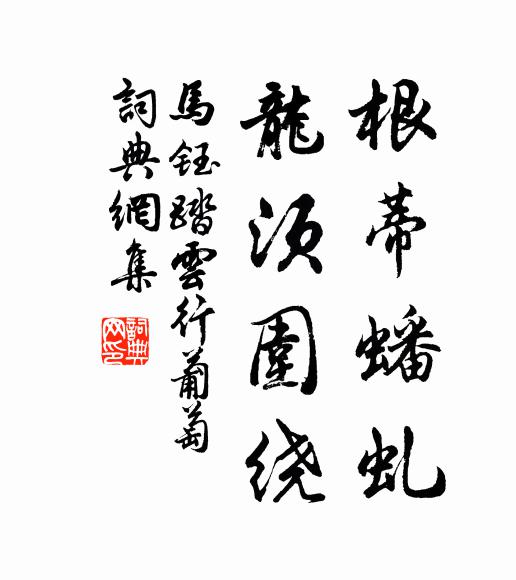 根蒂蟠虬
龍须圍绕
馬鈺踏雲行葡萄
詞典網集
詞典
网印